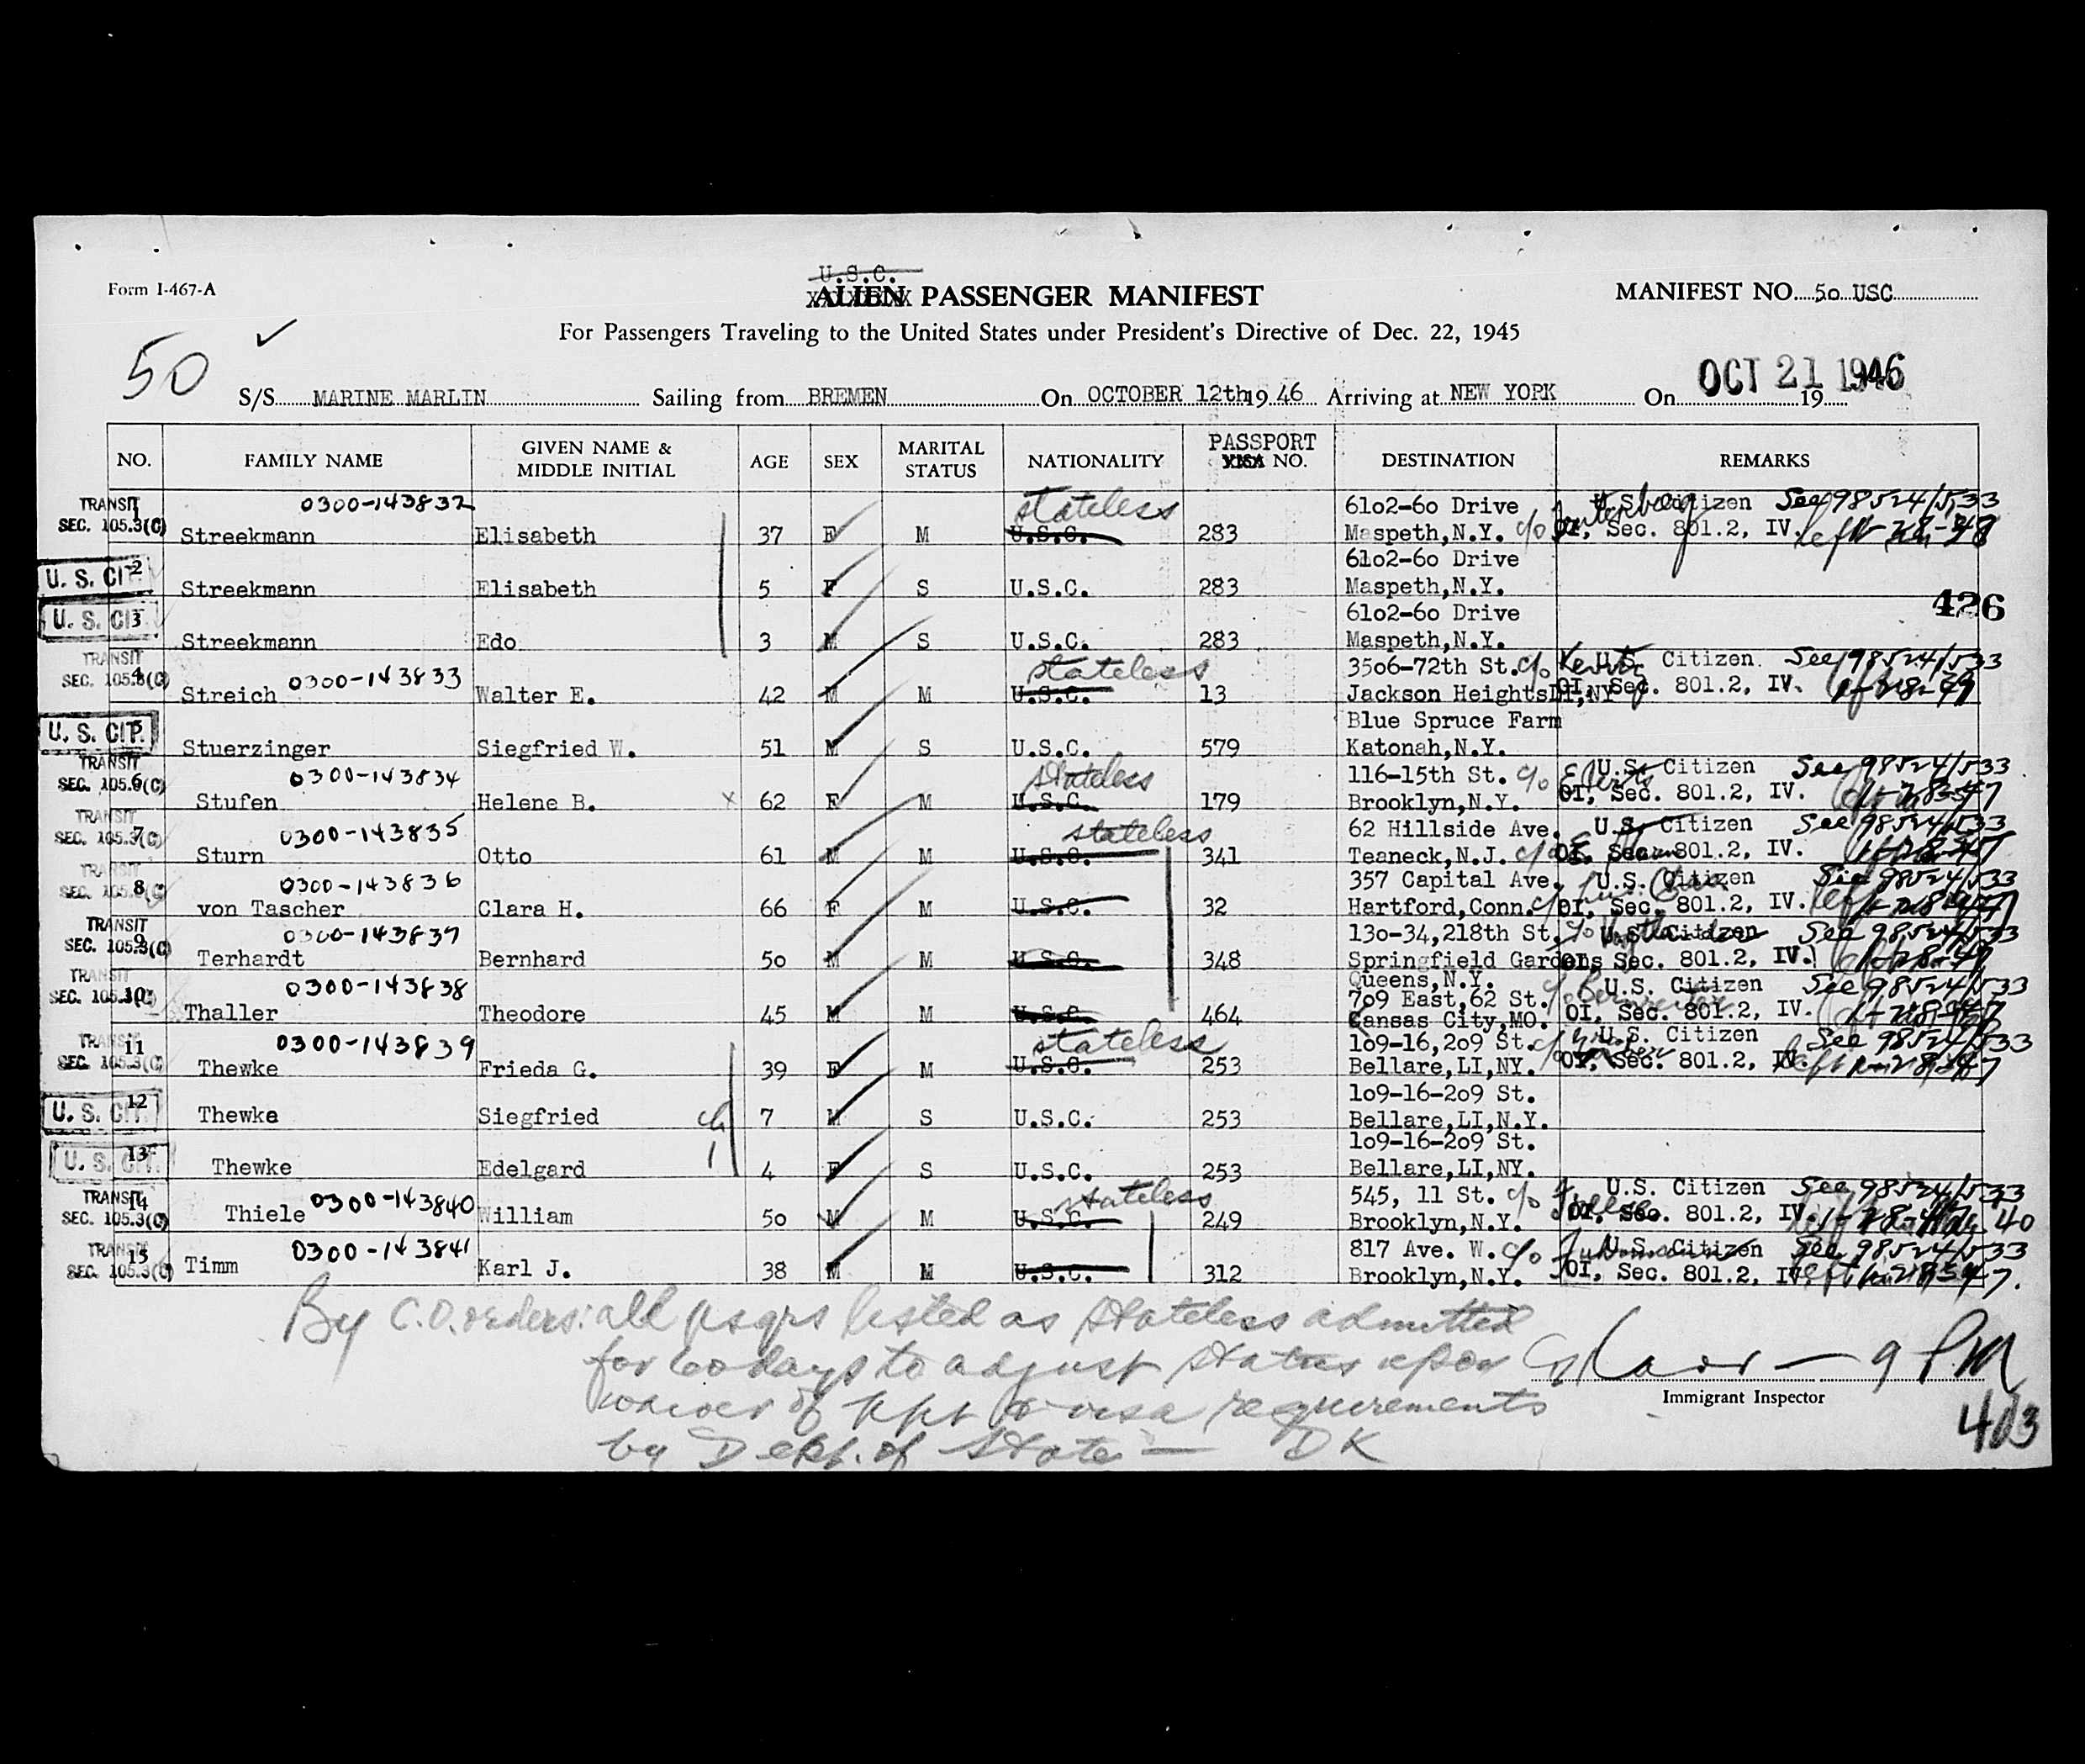 Form I-467-A
U.S.C.
ALIEN PASSENGER MANIFEST
MANIFEST NO. 50 USC
For Passengers Traveling to the United States under President's Directive of Dec. 22, 1945
50
S/S MARINE MARLIN Sailing from BREMEN On OCTOBER 12th 19 46 Arriving at NEW YORK On OCT 21 1946 19
NO. FAMILY NAME GIVEN NAME & MIDDLE INITIAL AGE SEX MARITAL STATUS NATIONALITY PASSPORT VISA NO. DESTINATION REMARKS
TRANSIT 1 0300-143832 stateless 6102-60 Drive U.S. Citizen See 98524/533
SEC. 105.3(C) Streekmann Elisabeth 37 F M U.S.C. 283 Maspeth,N.Y. c/o OI, Sec. 801.2, IV. left
6102-60 Drive
U. S. CIT. 2 Streekmann Elisabeth 5 F S U.S.C. 283 Maspeth,N.Y.
426
6102-60 Drive
U. S. CIT. 3 Streekmann Edo 3 M S U.S.C. 283 Maspeth,N.Y.
TRANSIT 4 0300-143833 stateless 3506-72th St. c/o U.S. Citizen See 98524/533
SEC. 105.3(C) Streich Walter E. 42 M M U.S.C. 13 Jackson Heights LI,NY OI, Sec. 801.2, IV.
Blue Spruce Farm
U. S. CIT. 5 Stuerzinger Siegfried W. 51 M S U.S.C. 579 Katonah,N.Y.
TRANSIT 6 0300-143834 stateless 116-15th St. c/o U.S. Citizen See 98524/533
SEC. 105.3(C) Stufen Helene B. x 62 F M U.S.C. 179 Brooklyn,N.Y. OI, Sec. 801.2, IV.
TRANSIT 7 0300-143835 stateless 62 Hillside Ave. U.S. Citizen See 98524/533
SEC. 105.3(C) Sturn Otto 61 M M U.S.C. 341 Teaneck,N.J. c/o OI, Sec. 801.2, IV.
TRANSIT 8 0300-143836 357 Capital Ave. U.S. Citizen See 98524/533
SEC. 105.3(C) von Tascher Clara H. 66 F M U.S.C. 32 Hartford,Conn. c/o OI, Sec. 801.2, IV.
TRANSIT 9 0300-143837 130-34,218th St. c/o U.S. Citizen See 98524/533
SEC. 105.3(C) Terhardt Bernhard 50 M M U.S.C. 348 Springfield Gardens OI, Sec. 801.2, IV.
Queens,N.Y.
TRANSIT 10 0300-143838 709 East,62 St. c/o U.S. Citizen See 98524/533
SEC. 105.3(C) Thaller Theodore 45 M M U.S.C. 464 Cansas City,MO. OI, Sec. 801.2, IV.
TRANSIT 11 0300-143839 stateless 109-16,209 St. c/o U.S. Citizen See 98524/533
SEC. 105.3(C) Thewke Frieda G. 39 F M U.S.C. 253 Bellare,LI,NY. OI, Sec. 801.2, IV.
109-16-209 St.
U. S. CIT. 12 Thewke Siegfried ch 7 M S U.S.C. 253 Bellare,LI,N.Y.
109-16-209 St.
U. S. CIT. 13 Thewke Edelgard 4 F S U.S.C. 253 Bellare,LI,NY.
TRANSIT 14 0300-143840 stateless 545, 11 St. c/o U.S. Citizen See 98524/533
SEC. 105.3(C) Thiele William 50 M M U.S.C. 249 Brooklyn,N.Y. OI, Sec. 801.2, IV.
TRANSIT 15 0300-143841 817 Ave. W. c/o U.S. Citizen See 98524/533
SEC. 105.3(C) Timm Karl J. 38 M M U.S.C. 312 Brooklyn,N.Y. OI, Sec. 801.2, IV
By C.O. orders: all psgrs listed as stateless admitted
for 60 days to adjust status upon
9 PM
waiver of ppt & visa requirements
Immigrant Inspector
by Dept. of State — DK
403